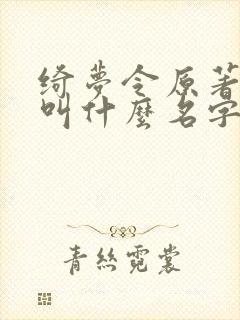 绮夢令原著
叫什麼名字
青絲霓裳